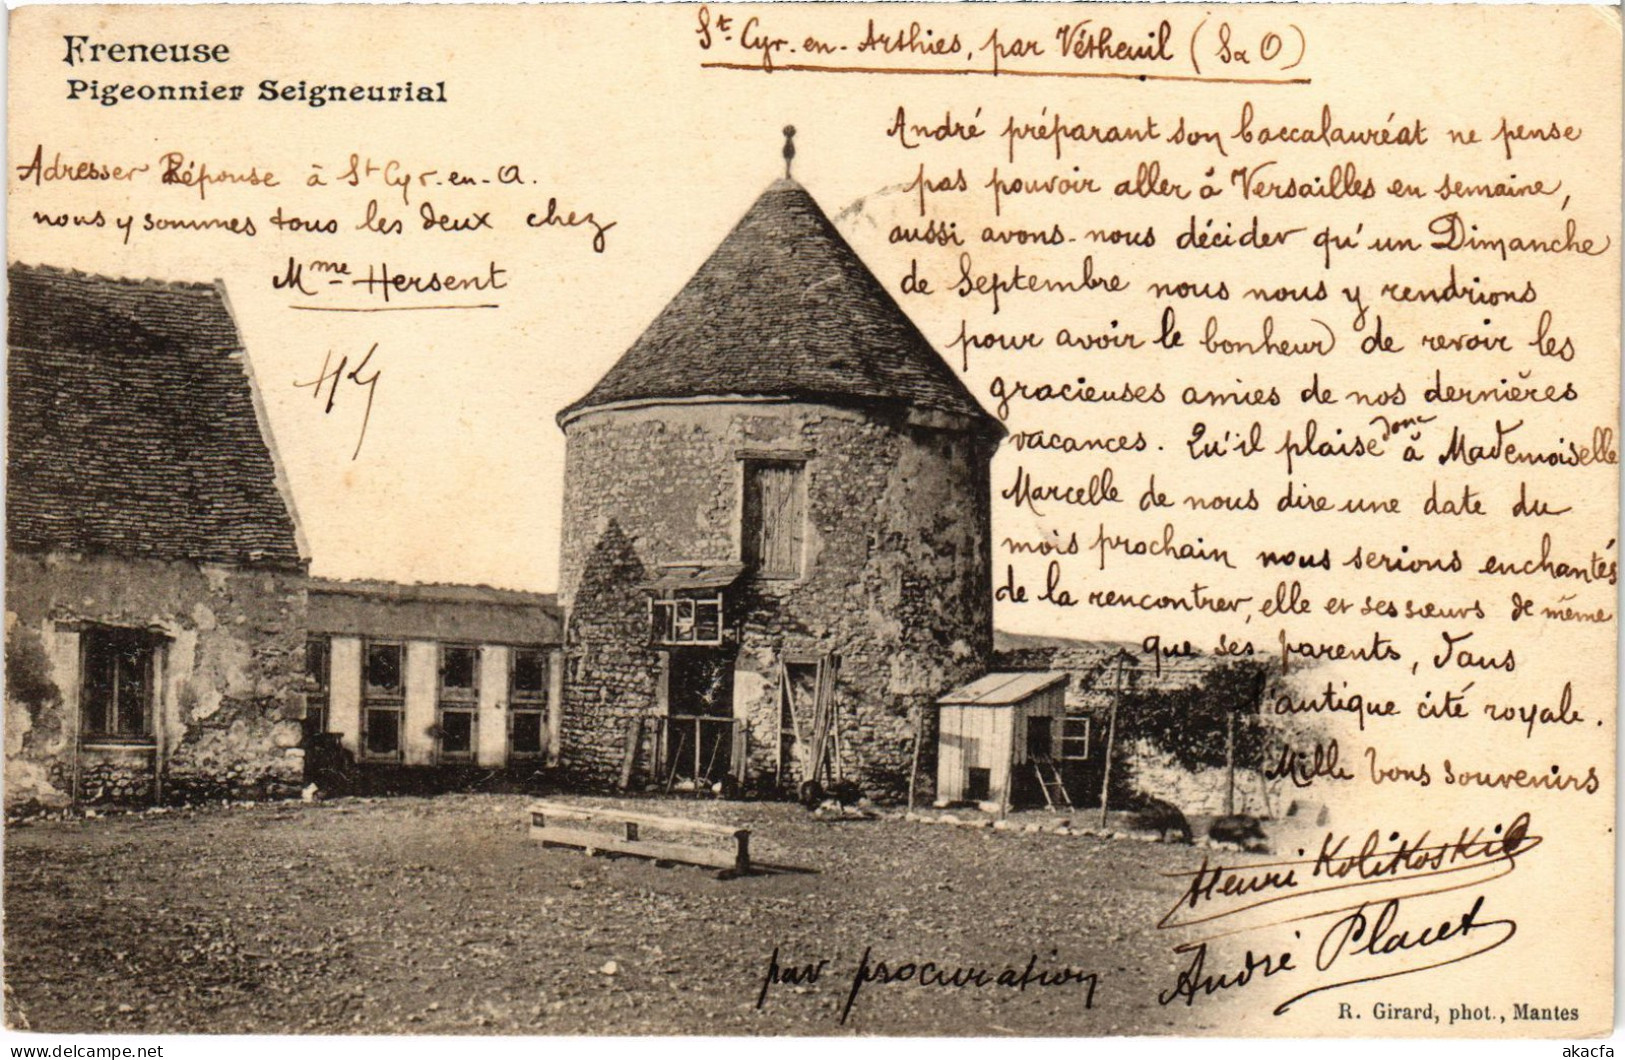 Freneuse
Pigeonnier Seigneurial
St. Cyr-en-Arthies, par Vétheuil (S & O)
Adresser Réponse à St Cyr-en-A.
nous y sommes tous les deux chez
Mme Hersent
André préparant son baccalauréat ne pense
pas pouvoir aller à Versailles en semaine,
aussi avons-nous décider qu'un Dimanche
de Septembre nous nous y rendrions
pour avoir le bonheur de revoir les
gracieuses amies de nos dernières
vacances. Qu'il plaise donc à Mademoiselle
Marcelle de nous dire une date du
mois prochain nous serions enchantés
de la rencontrer, elle et ses sœurs de même
que ses parents, dans
l'antique cité royale.
Mille bons souvenirs
Henri Kolikoski
par procuration André Placet
R. Girard, phot., Mantes
akacfa